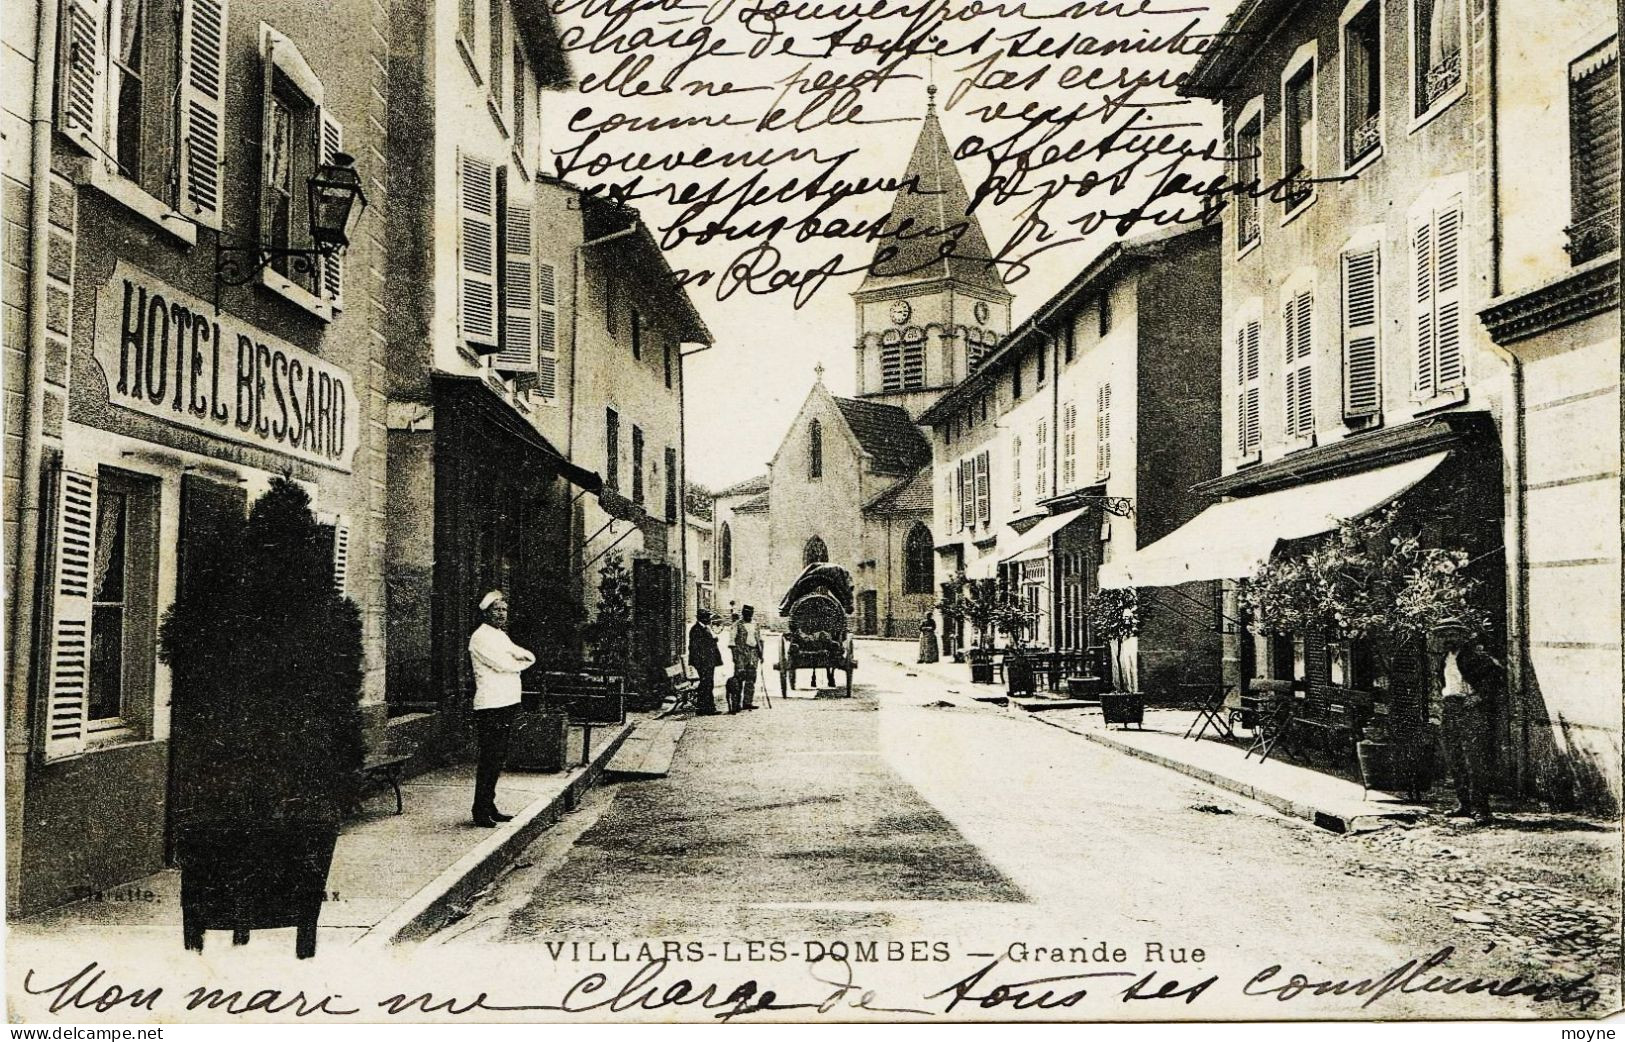 Mme Bouveyron me
charge de toutes ses amitiés
elle ne peut pas ecrire
comme elle veut
Souvenirs affectueux
et respectueux à vos parents
bons baisers pr vous
HOTEL BESSARD
VILLARS-LES-DOMBES — Grande Rue
Mon mari me charge de tous ses compliments
delcampe.net
moyne